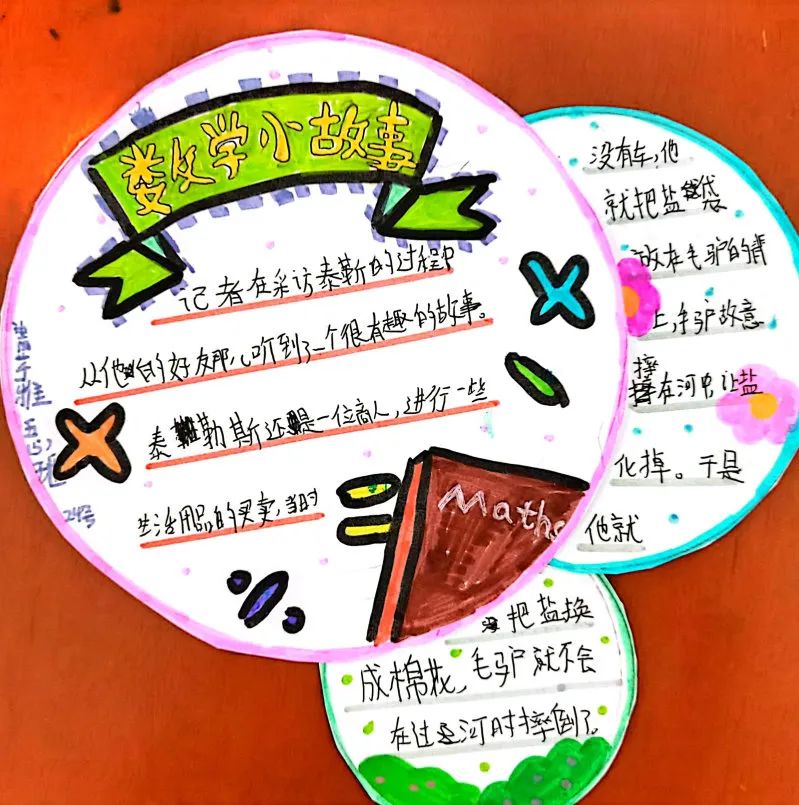 数学小故事
记者在采访泰勒的过程中
从他的好友那儿听到了一个很有趣的故事。
泰勒斯还是一位商人,进行一些
生活用品的买卖,当时
Maths
没有车,他
就把盐袋
放在毛驴的背
上,毛驴故意
摔在河中让盐
化掉。于是
他就
把盐换
成棉花,毛驴就不会
在过河时摔倒了。
24号